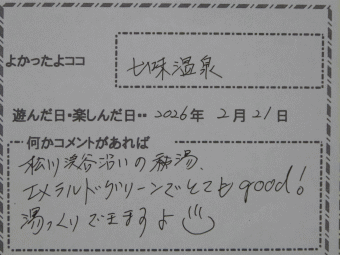 よかったよココ
七味温泉
遊んだ日・楽しんだ日・・ 2026年 2月21日
何かコメントがあれば
松川渓谷沿いの秘湯、
エメラルドグリーンでとてもgood!
湯っくりできますよ